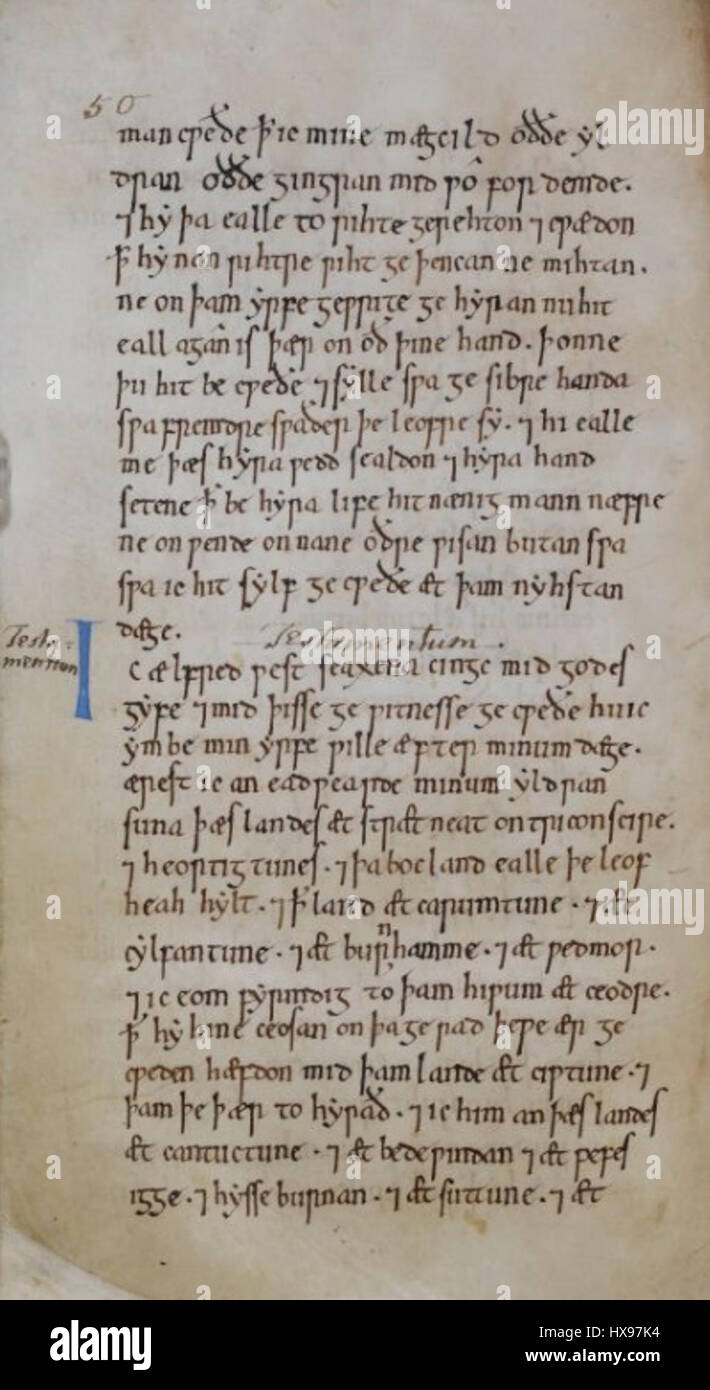 50
man cƿęðe ꝥ ic mine mægcild oððe yl
dran oððe gingran mid ƿo fordemde.
⁊ hy þa ealle to rihte gerehton ⁊ cƿædon
ꝥ hy nan rihtre riht geþencan ne mihtan.
ne on þam yrfegeƿrite gehyran nu hit
eall agan is þær on oð þine hand. þonne
þu hit becƿeðe ⁊ sylle sƿa gesibre handa
sƿa fremdre sƿaðer þe leofre sy. ⁊ hi ealle
me þæs hyra ƿedd sealdon ⁊ hyra hand
setene ꝥ be hyra life hit nænig mann næfre
ne onƿende on nane oðre ƿisan butan sƿa
sƿa ic hit sylf gecƿeðe æt þam nyhstan
dæge. Testamentum.
Testamentum
Ic ælfred ƿestseaxena cinge mid godes
gyfe ⁊ mid þisse geƿitnesse gecƿeðe hu ic
ymbe min yrfe ƿille æfter minum dæge.
ærest ic an eadƿearde minum yldran
suna þæs landes æt strætneat on triconscire.
⁊ heortigtunes. ⁊ þa bocland ealle þe leof
heah hylt. ⁊ ꝥ land æt carumtune. ⁊ æt
cylfantune. ⁊ æt burnhamme. ⁊ æt ƿedmor.
⁊ ic eom fyrmdig to þam hiƿum æt ceodre.
ꝥ hy hine ceosan on þa gerad þe ƿe ær ge
cƿeden hæfdon mid þam lande æt ciƿtune. ⁊
þam þe þær to hyrað. ⁊ ic him an þæs landes
æt cantuctune. ⁊ æt bedeƿindan ⁊ æt ƿefes
igge. ⁊ hysseburnan. ⁊ æt suttune. ⁊ æt
alamy
Image ID: HX97K4
www.alamy.com